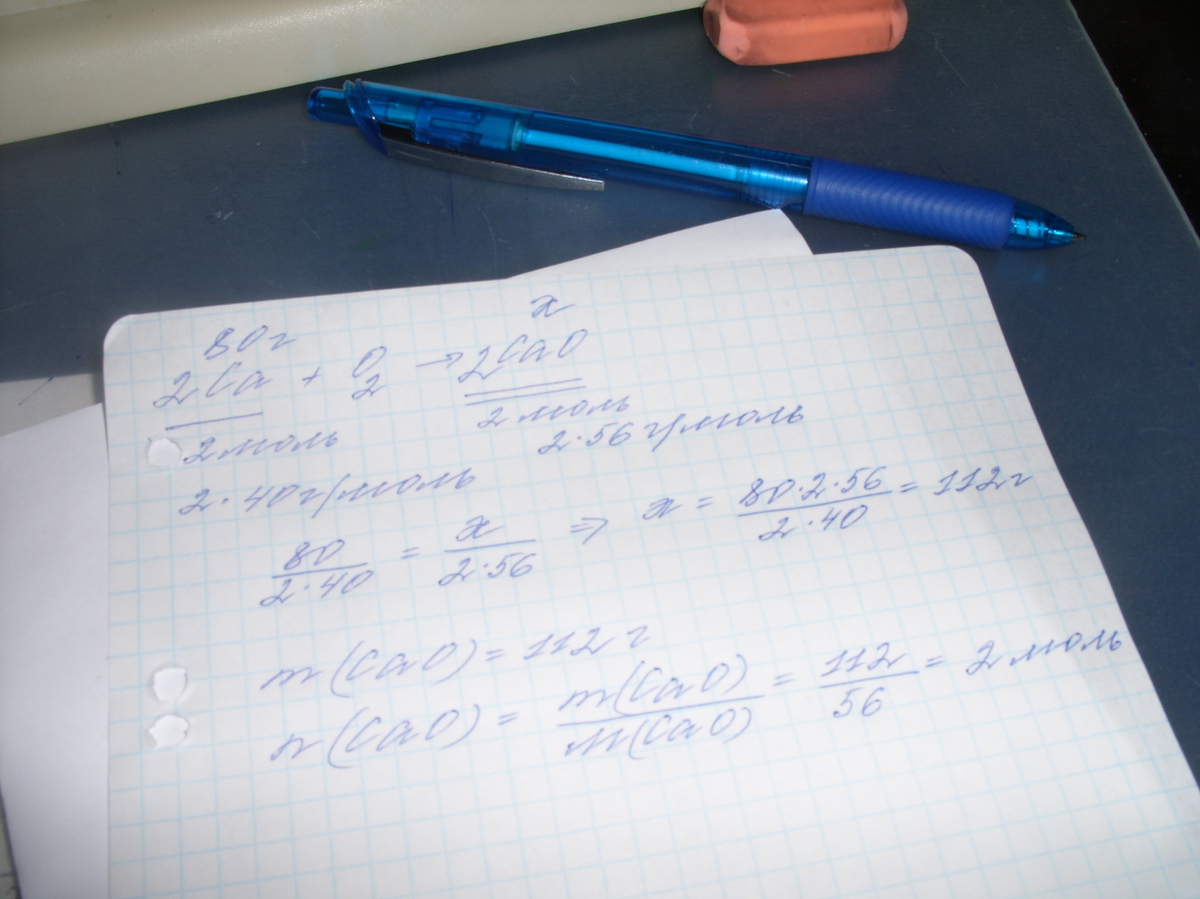 80г x
2Ca + O2 → 2CaO
2 моль 2 моль
2·40г/моль 2·56 г/моль
80/2·40 = x/2·56 ⇒ x = 80·2·56/2·40 = 112г
m(CaO) = 112 г
n(CaO) = m(CaO)/M(CaO) = 112/56 = 2 моль